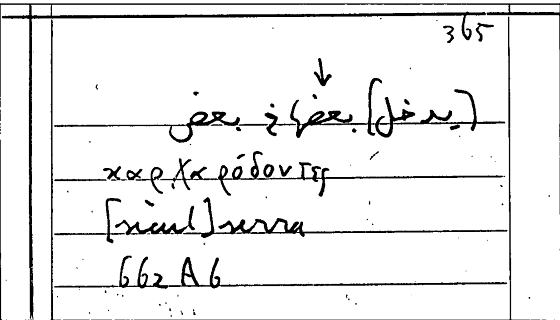 365
↓
(يدخل] بعضها في بعض
καρχαρόδοντες
[sicut] serra
662 A 6